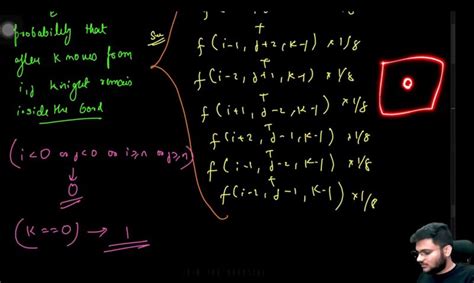 probability that
after K moves from
i,j knight remains
inside the board
(i<0 or j<0 or i≥n or j≥n)
↓
0
(K==0) → 1
Sum
+
f(i-1, j+2, K-1) × 1/8
+
f(i-2, j+1, K-1) × 1/8
+
f(i+1, j-2, K-1) × 1/8
+
f(i+2, j-1, K-1) × 1/8
+
f(i-1, j-2, K-1) × 1/8
+
f(i-2, j-1, K-1) × 1/8